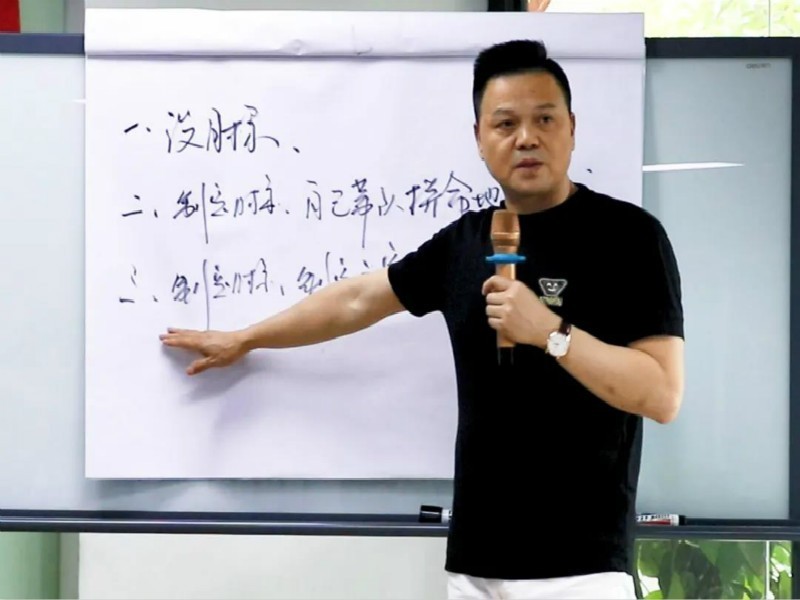 一、没目标、
二、制定目标、自己带头拼命地
三、制定目标、制定